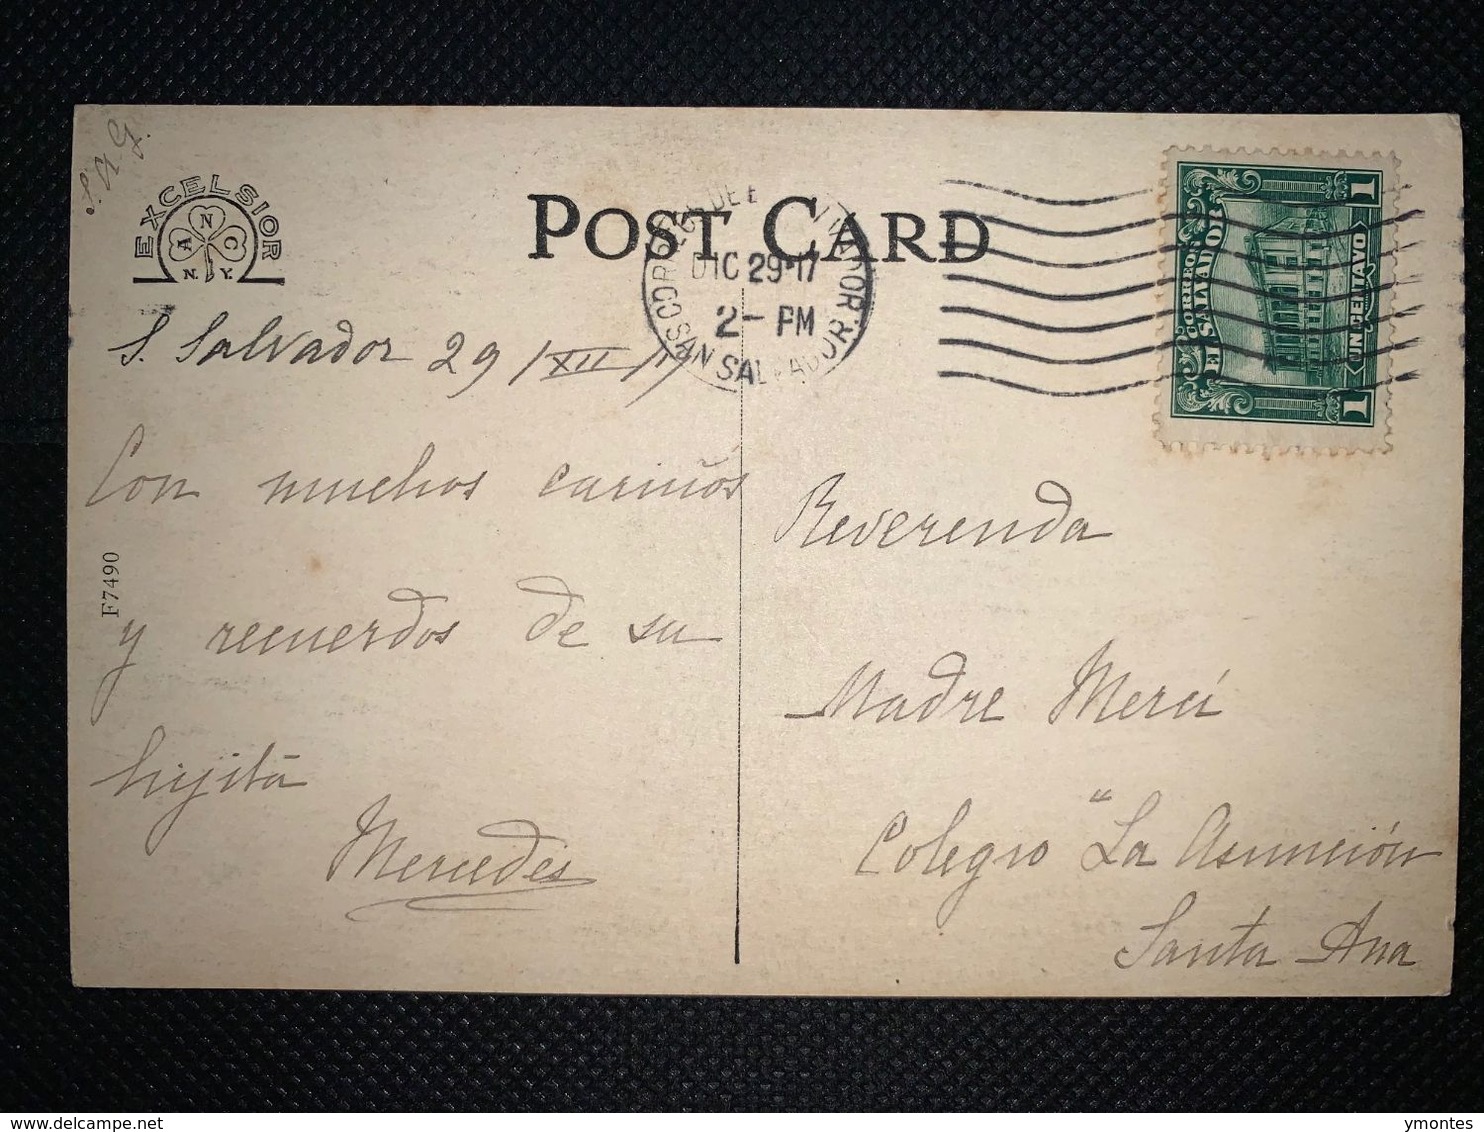 S. N. G.
EXCELSIOR
ANC
N.Y.
POST CARD
CORREOS DE EL SALVADOR.
DIC 29-17
2-PM
SAN SALVADOR.
CORREOS
EL SALVADOR
UN CENTAVO
1
1
S. Salvador 29/XII/17
Con muchos cariños
y recuerdos de su
hijita
Mercedes
F7490
Reverenda
Madre Merci
Colegio "La Asunción
Santa Ana
delcampe.net
ymontes